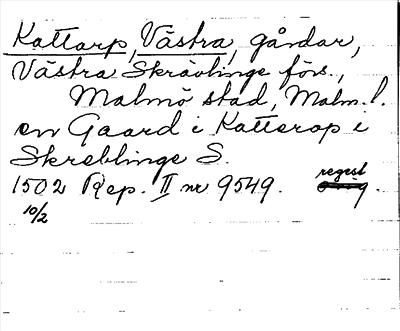 Kattarp, Västra, gårdar,
Västra Skrävlinge förs.,
Malmö stad, Malm. l.
en Gaard i Katterop i
Skreblinge S.
regest
1502 Rep. II nr 9549. orig.
10/2